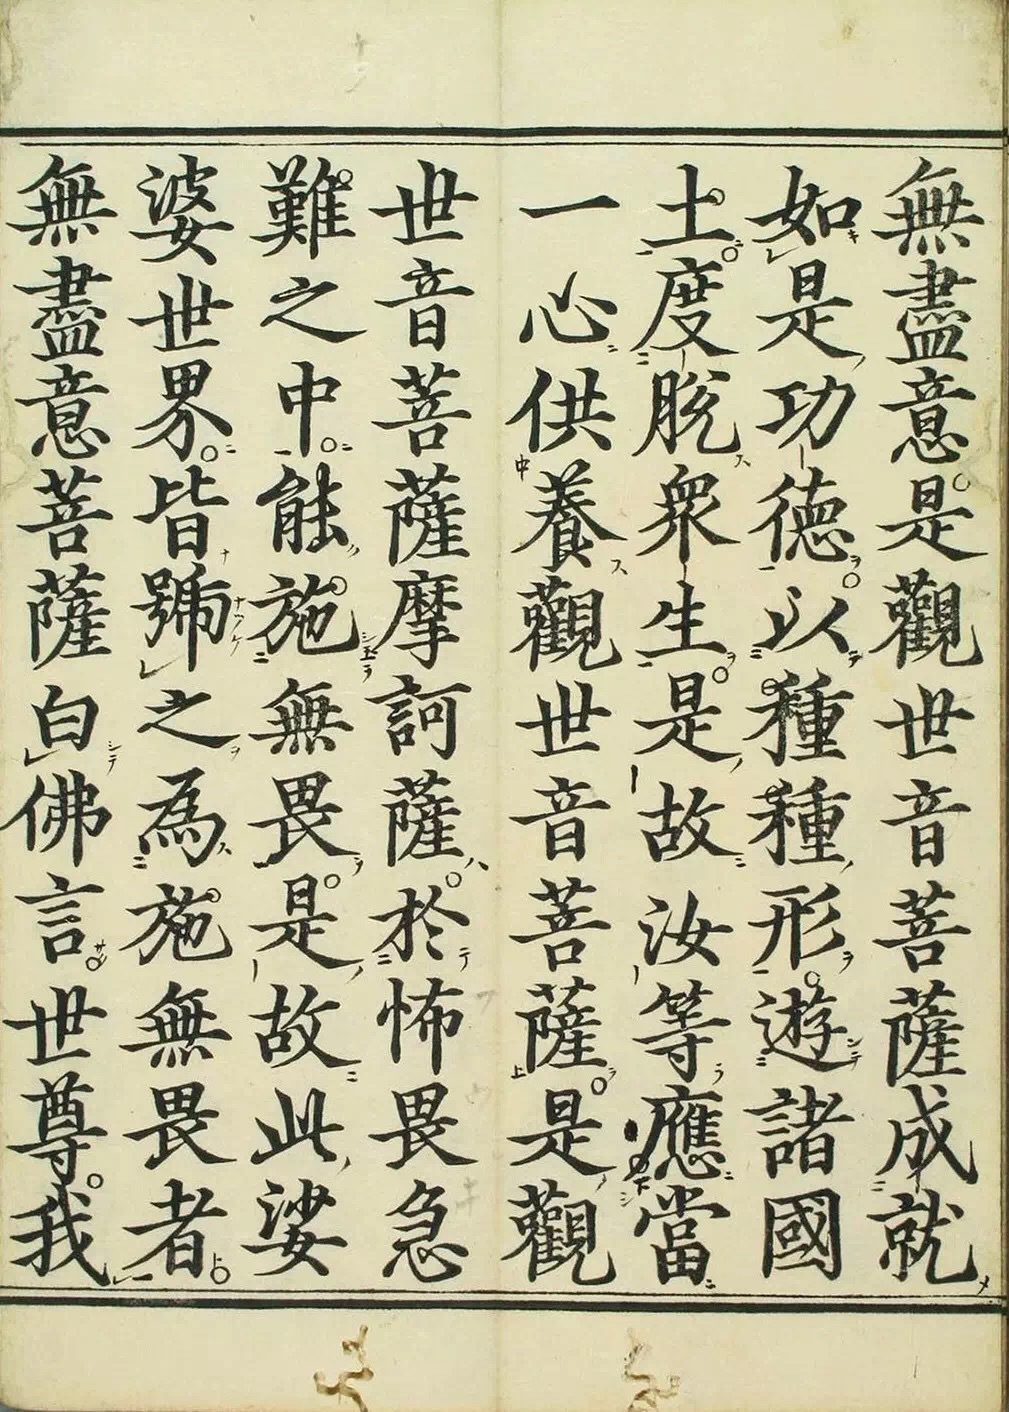 無盡意是觀世音菩薩成就
如是功德以種種形遊諸國
土度脫衆生是故汝等應當
一心供養觀世音菩薩是觀
世音菩薩摩訶薩於怖畏急
難之中能施無畏是故此娑
婆世界皆號之為施無畏者
無盡意菩薩白佛言世尊我